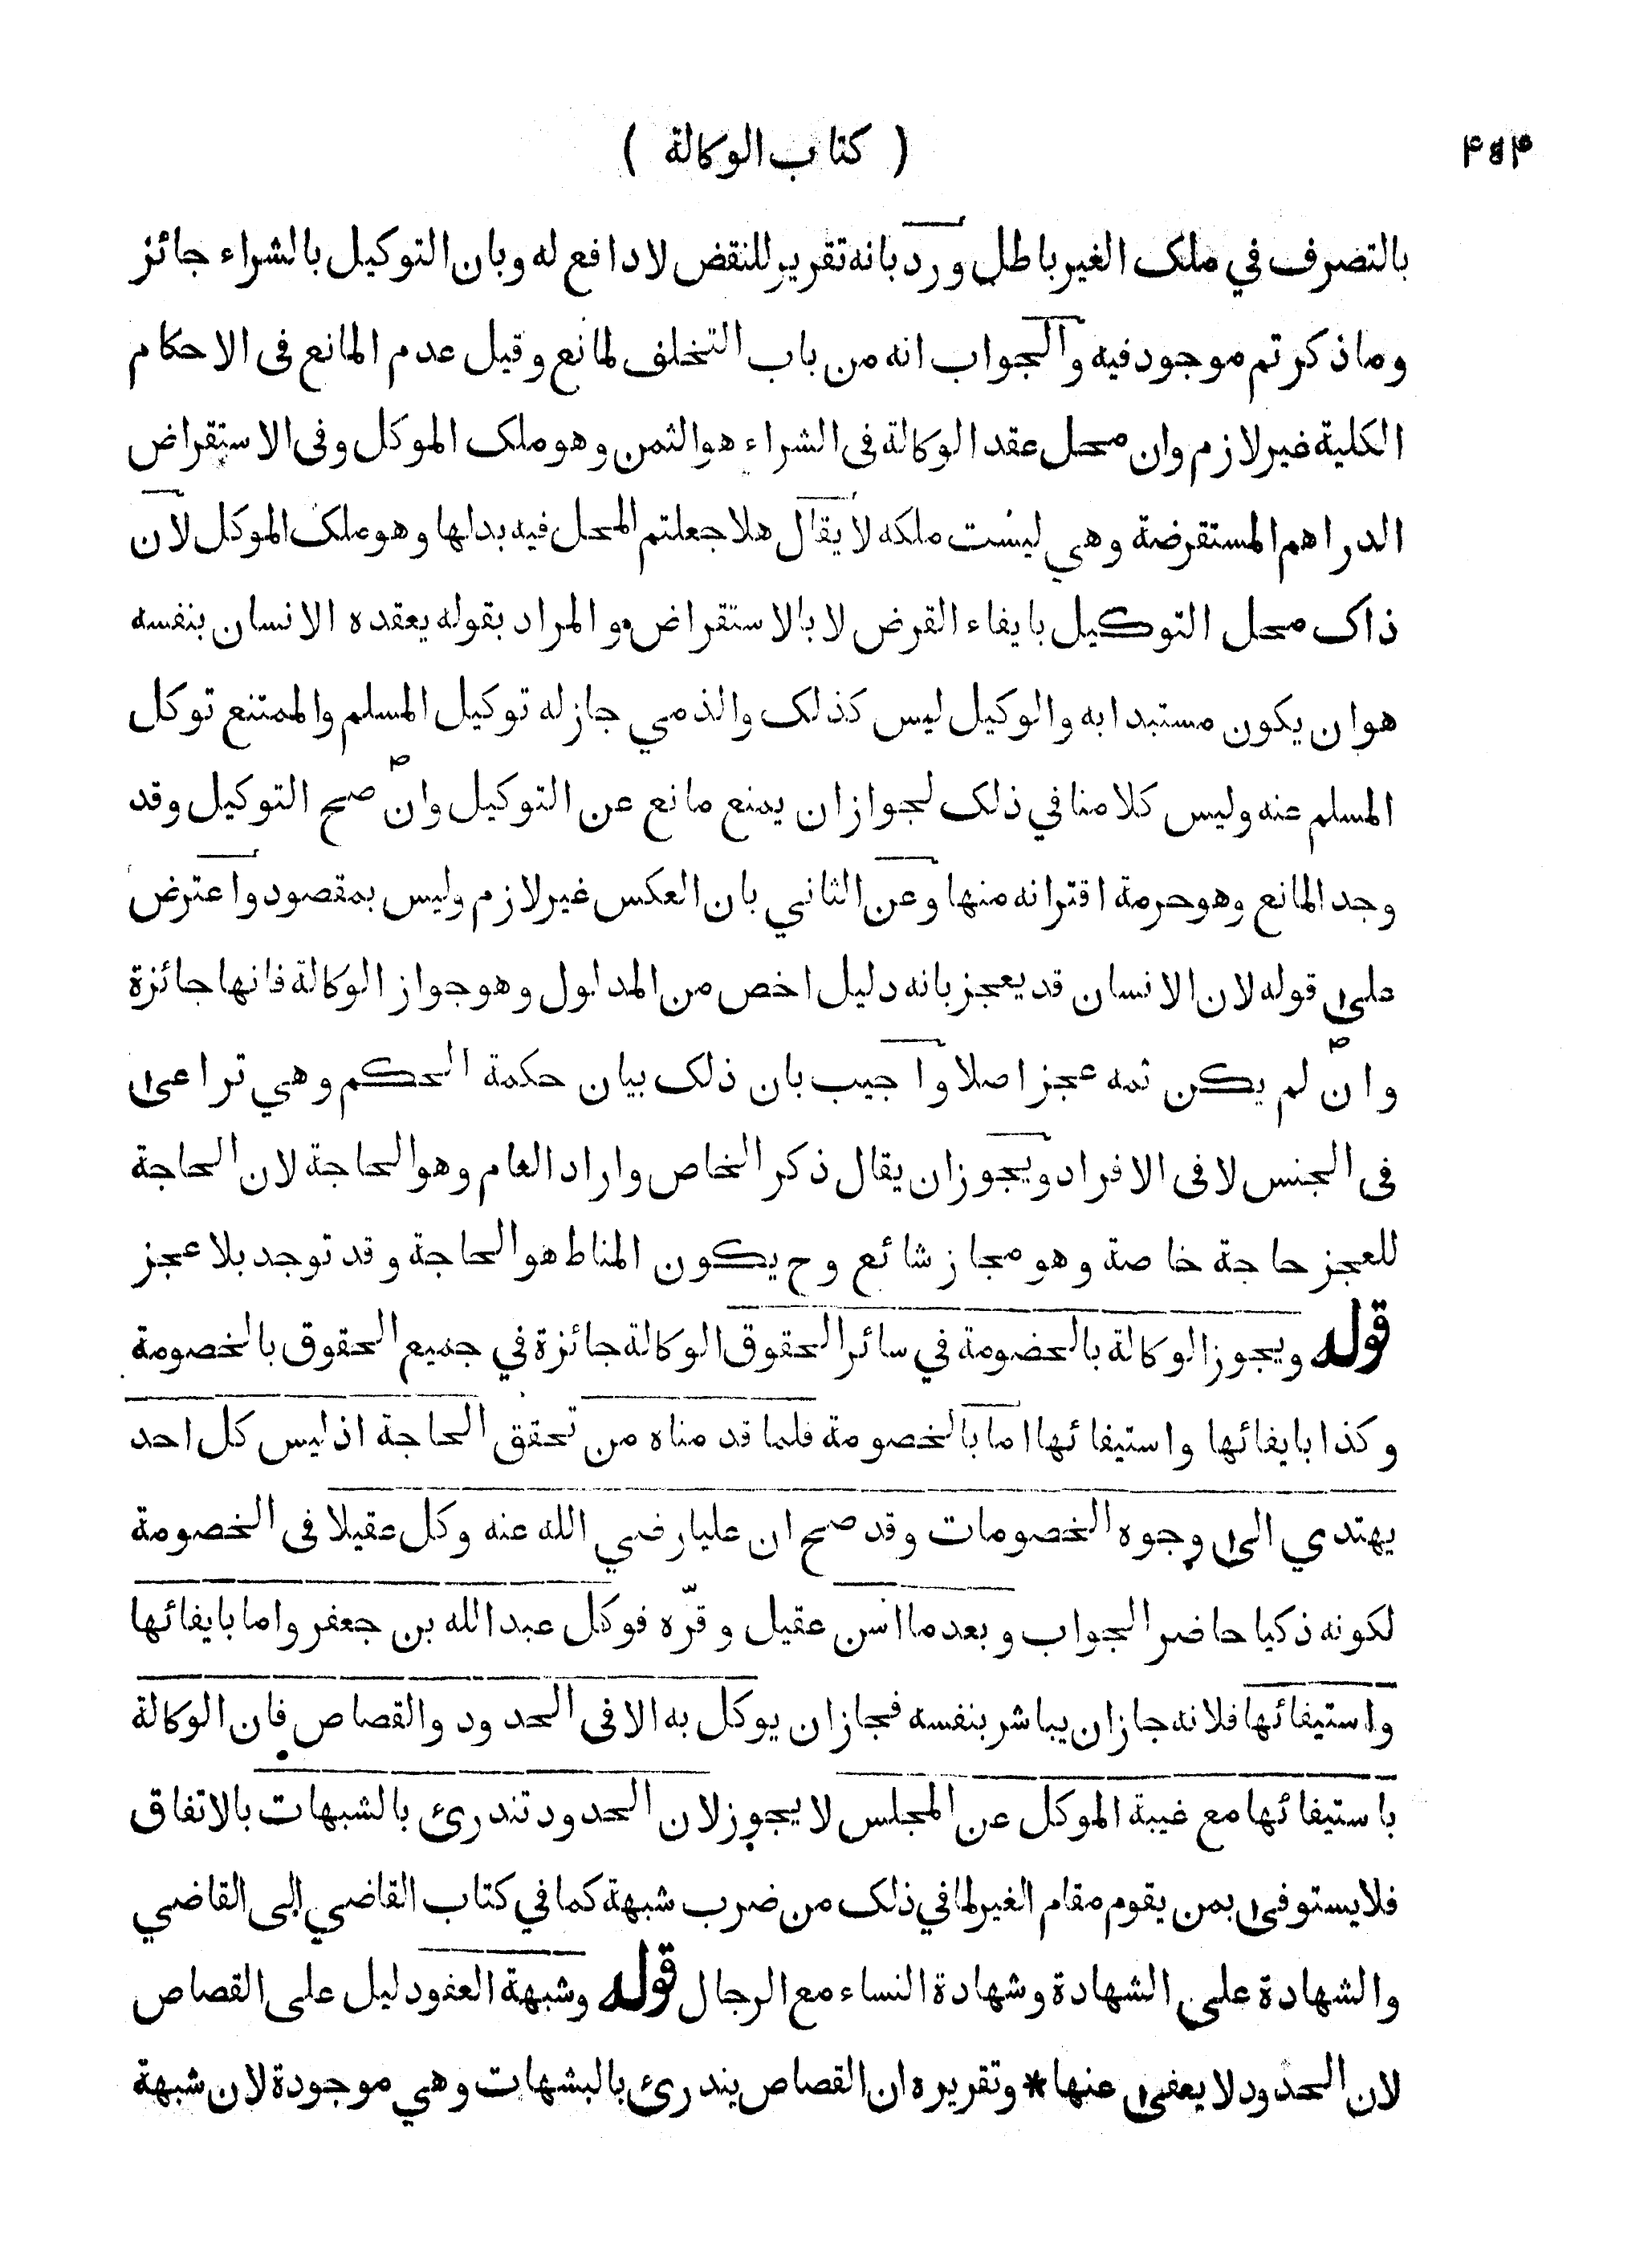 ( كتاب الوكالة )
بالتصرف في ملك الغير باطل ورد بانه تقرير للنقض لا دافع له وبان التوكيل بالشراء جائز
وما ذكرتم موجود فيه والجواب انه من باب التخلف لمانع وقيل عدم المانع فى الاحكام
الكلية غير لازم وان محل عقد الوكالة فى الشراء هو الثمن وهو ملك الموكل وفى الاستقراض
الدراهم المستقرضة وهي ليست ملكه لا يقال هلا جعلتم المحل فيه بدلها وهو ملك الموكل لان
ذاك محل التوكيل بايفاء القرض لا بالاستقراض و المراد بقوله يعقده الانسان بنفسه
هو ان يكون مستبدا به والوكيل ليس كذلك والذمي جاز له توكيل المسلم والممتنع توكل
المسلم عنه وليس كلامنا في ذلك لجواز ان يمنع مانع عن التوكيل وان صح التوكيل وقد
وجد المانع وهو حرمة اقترانه منها وعن الثاني بان العكس غير لازم وليس بمقصود واعترض
على قوله لان الانسان قد يعجز بانه دليل اخص من المدلول وهو جواز الوكالة فانها جائزة
وان لم يكن ثمه عجز اصلا واجيب بان ذلك بيان حكمة الحكم وهي تراعى
فى الجنس لا فى الافراد ويجوز ان يقال ذكر الخاص واراد العام وهو الحاجة لان الحاجة
للعجز حاجة خاصة وهو مجاز شائع وح يكون المناط هو الحاجة وقد توجد بلا عجز
قوله ويجوز الوكالة بالخصومة في سائر الحقوق الوكالة جائزة في جميع الحقوق بالخصومة
وكذا بايفائها واستيفائها اما بالخصومة فلما قدمناه من تحقق الحاجة اذ ليس كل احد
يهتدي الى وجوه الخصومات وقد صح ان عليا رضي الله عنه وكل عقيلا فى الخصومة
لكونه ذكيا حاضر الجواب وبعد ما اسن عقيل وقّره فوكل عبد الله بن جعفر واما بايفائها
واستيفائها فلانه جاز ان يباشر بنفسه فجاز ان يوكل به الا فى الحدود والقصاص فان الوكالة
باستيفائها مع غيبة الموكل عن المجلس لا يجوز لان الحدود تندرئ بالشبهات بالاتفاق
فلا يستوفى بمن يقوم مقام الغير لما في ذلك من ضرب شبهة كما في كتاب القاضي الى القاضي
والشهادة على الشهادة وشهادة النساء مع الرجال قوله وشبهة العفو دليل على القصاص
لان الحدود لا يعفى عنها * وتقريره ان القصاص يندرئ بالبشهات وهي موجودة لان شبهة